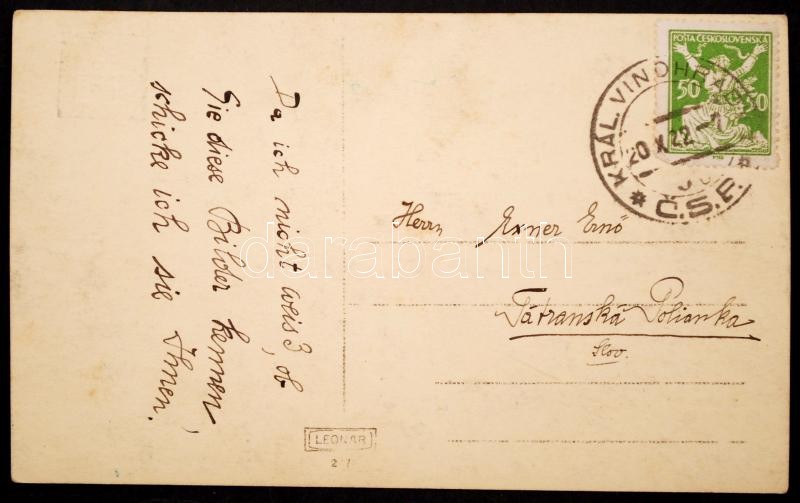 Da ich nicht weiß, ob
Sie diese Bilder kennen,
schicke ich sie Ihnen.
POŠTA ČESKOSLOVENSKÁ
50 50
KRÁL. VINOHRADY
20 X 22
Č.S.P.
Herrn Exner Ernő
Tátranská Polianka
Slov.
darabanth
LEONAR
2 7